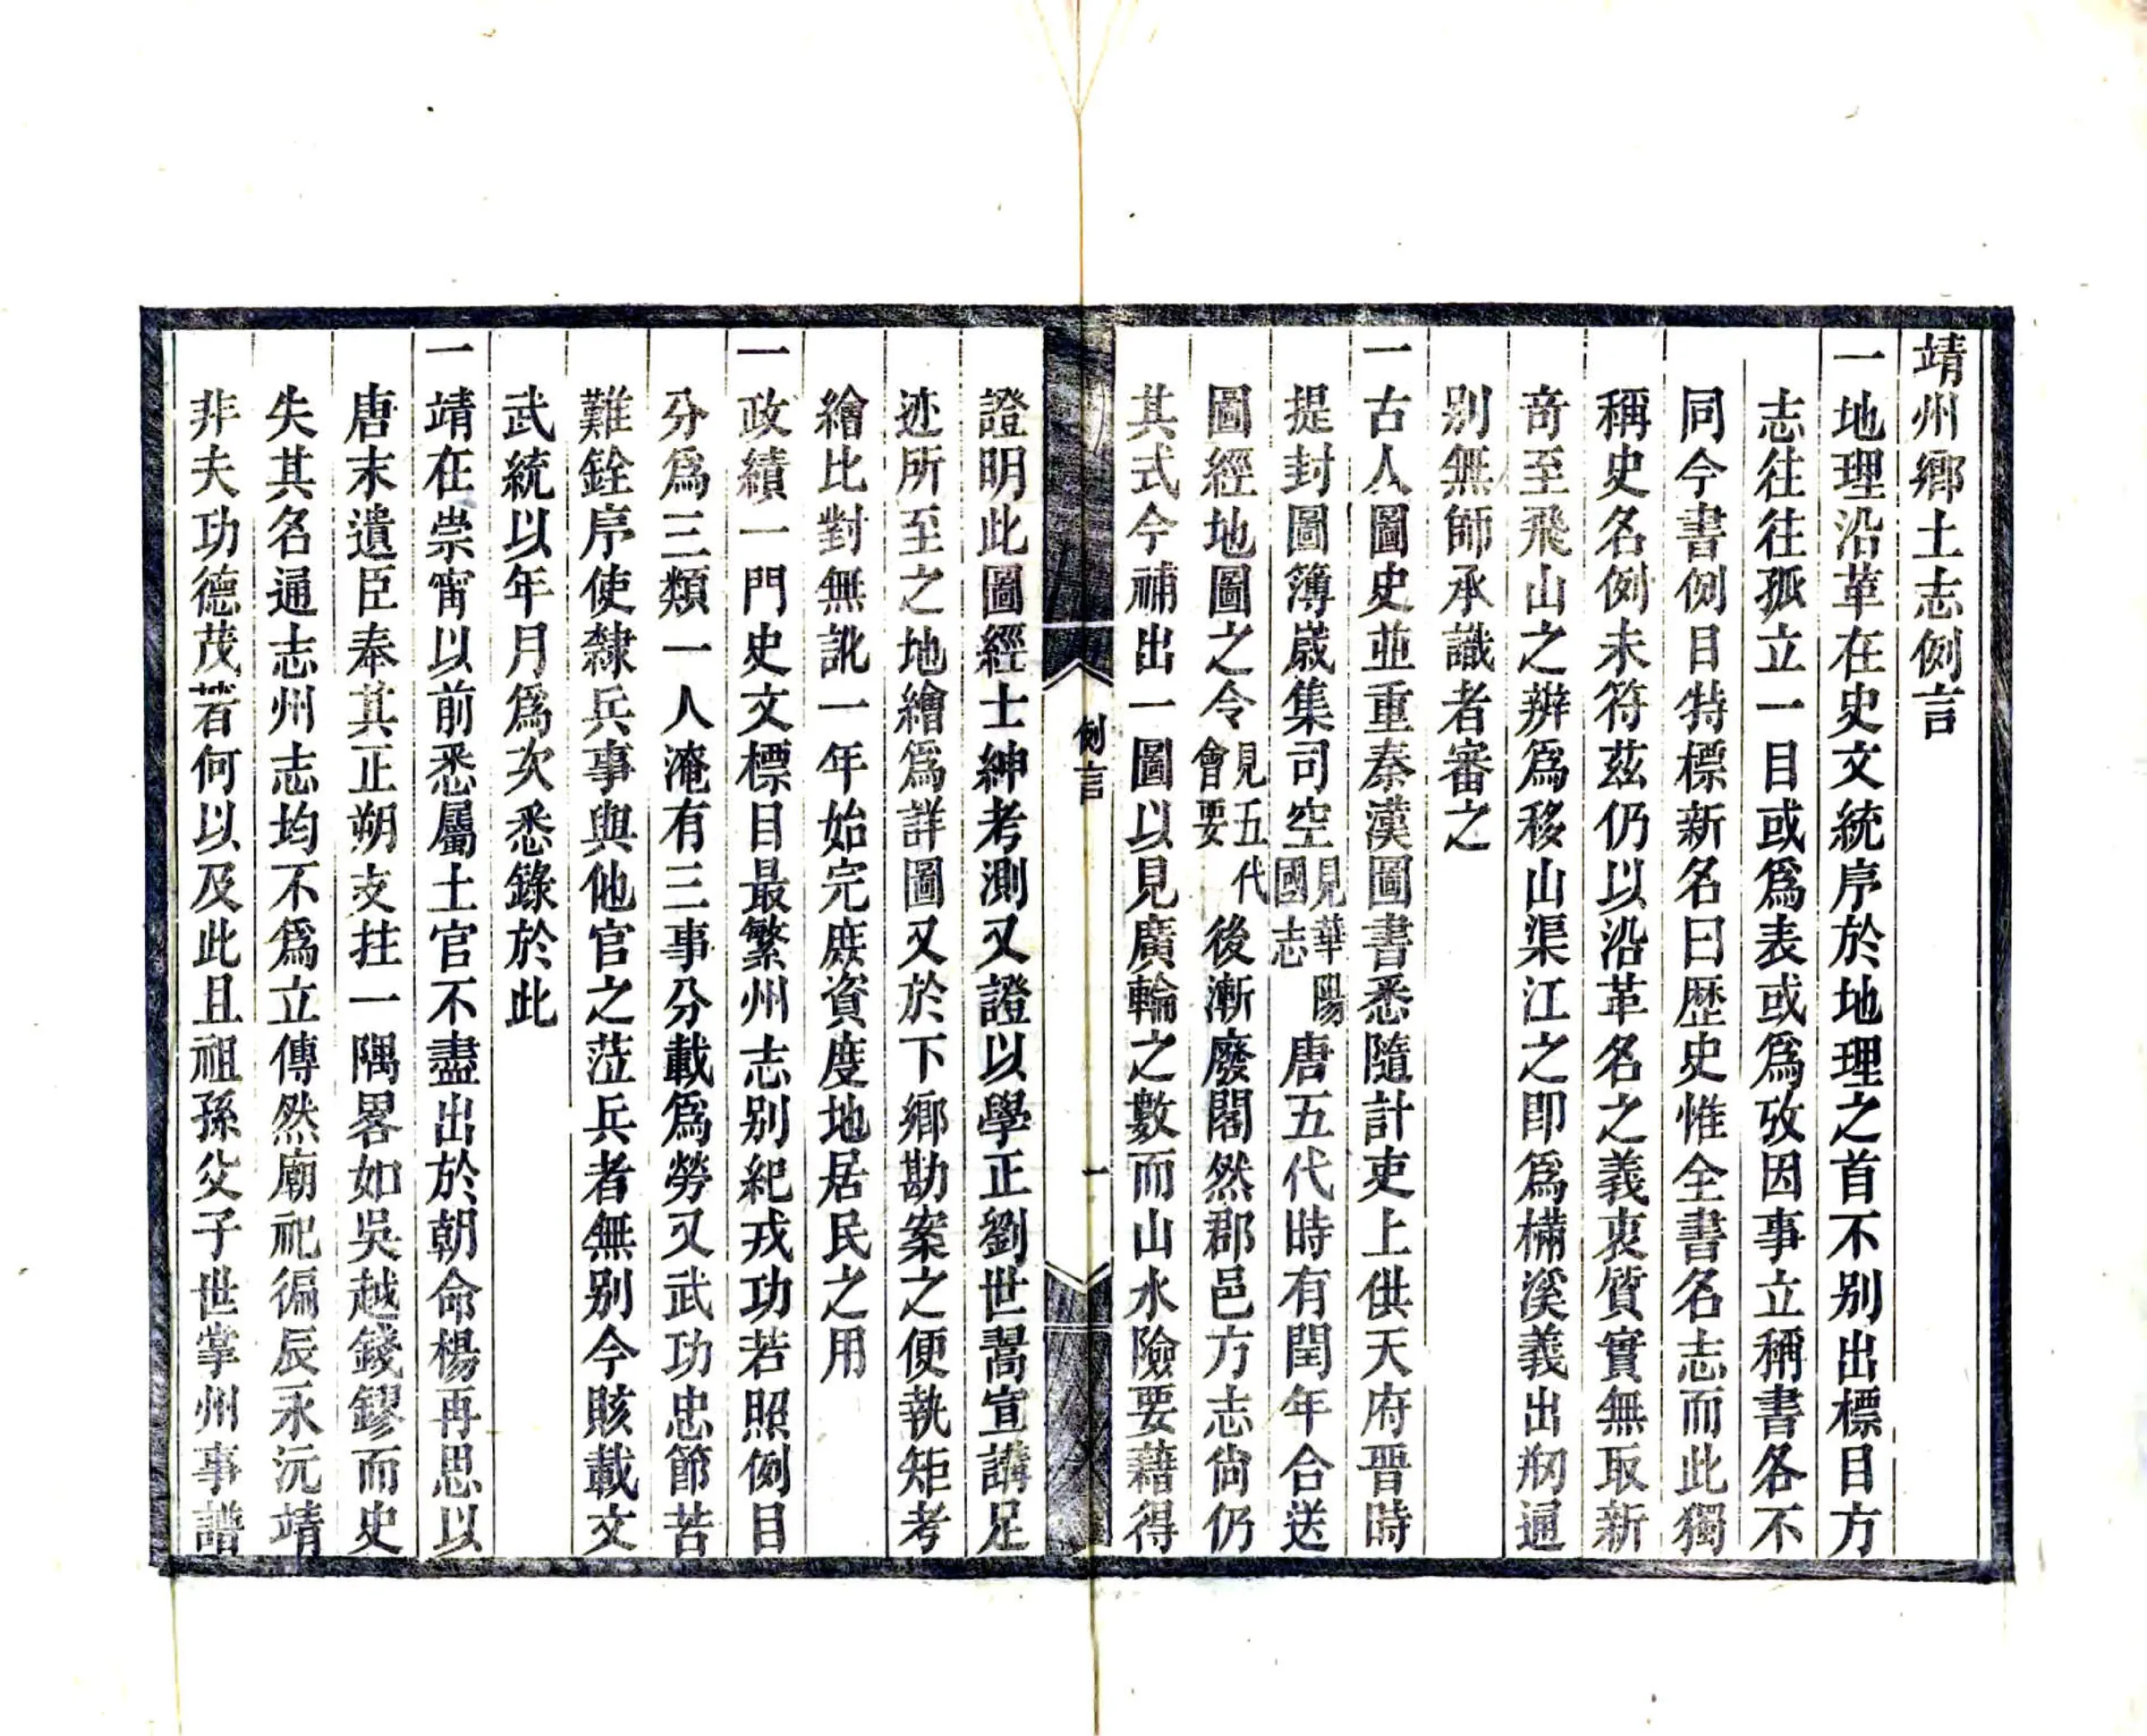 靖州鄉土志例言
一地理沿革在史文統序於地理之首不别出標目方
志往往孤立一目或爲表或爲攷因事立稱書各不
同今書例目特標新名曰歷史惟全書名志而此獨
稱史名例未符茲仍以沿革名之義衷質實無取新
奇至飛山之辨爲移山渠江之即爲樠溪義出剏通
别無師承識者審之
一古人圖史並重秦漢圖書悉隨計吏上供天府晋時
提封圖簿歲集司空見華陽國志唐五代時有閏年合送
圖經地圖之令見五代會要後漸廢閣然郡邑方志尙仍
其式今補出一圖以見廣輪之數而山水險要藉得
例言
一
證明此圖經士紳考測又證以學正劉世翯宣講足
迹所至之地繪爲詳圖又於下鄉勘案之便執矩考
繪比對無訛一年始完庶資度地居民之用
一政績一門史文標目最繁州志别紀戎功若照例目
分爲三類一人淹有三事分載爲勞又武功忠節苦
難銓序使隸兵事與他官之蒞兵者無别今賅載文
武統以年月爲次悉錄於此
一靖在崇甯以前悉屬土官不盡出於朝命楊再思以
唐末遺臣奉其正朔支拄一隅畧如吳越錢鏐而史
失其名通志州志均不爲立傳然廟祀徧辰永沅靖
非夫功德茂著何以及此且祖孫父子世掌州事譜